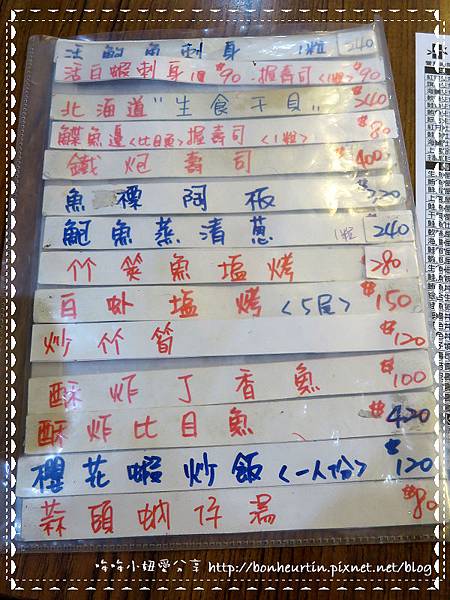 活鮑魚刺身 1粒 240
活白蝦刺身 1個 $90 . 握壽司<1粒> $90
北海道"生食干貝" 240
鰈魚邊<比目魚>握壽司 <1粒> $80
鐵炮壽司 $400
魚標阿板 $220
鮑魚蒸清蔥 1粒 240
竹筴魚塩烤 280
白蚵塩烤 <5尾> $150
炒竹筍 $120
酥炸丁香魚 $100
酥炸比目魚 $420
櫻花蝦炒飯 <一人份> $120
蒜頭蚋仔湯 $80
哞哞小妞愛分享 http://bonheurtin.pixnet.net/blog